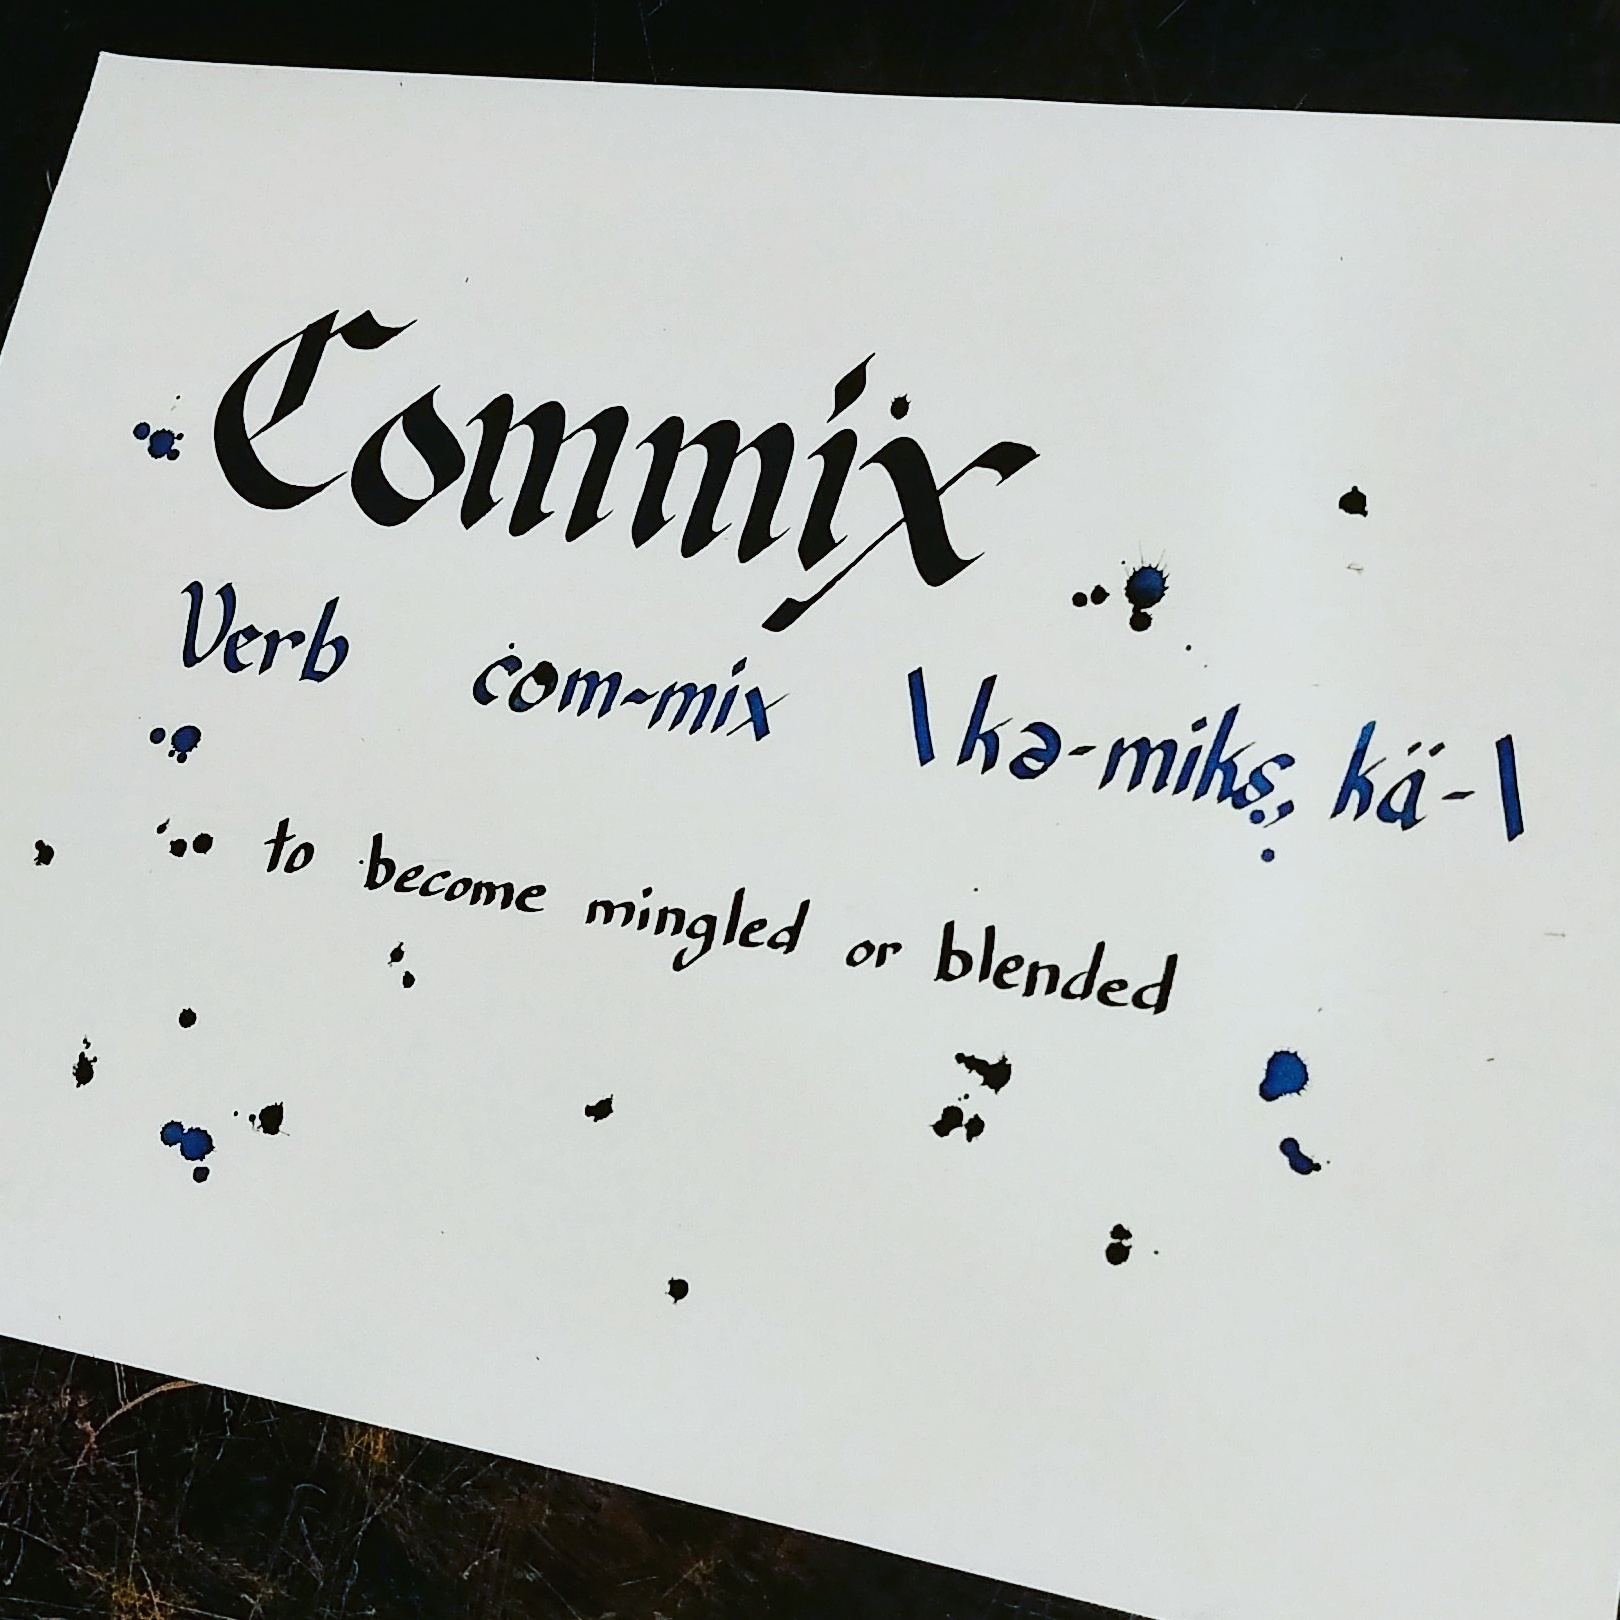 Commix
Verb com-mix \kə-miks, kä-\
to become mingled or blended